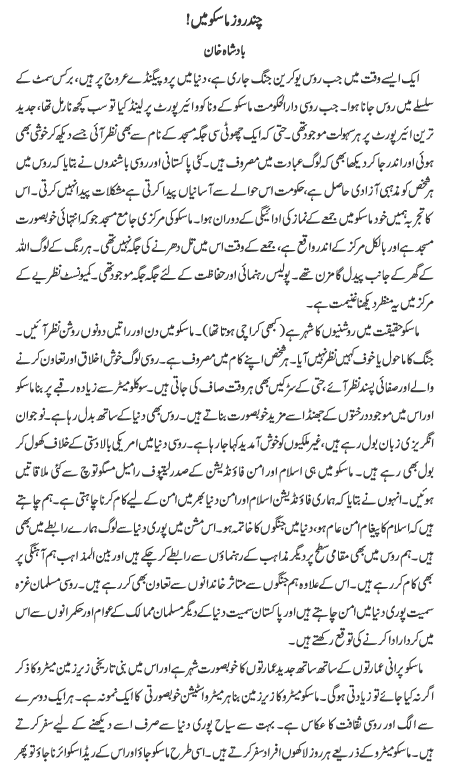 چند روز ماسکو میں!
بادشاہ خان
ایک ایسے وقت میں جب روس یوکرین جنگ جاری ہے، دنیا میں پروپیگنڈے عروج پر ہیں، برکس سمٹ کے
سلسلے میں روس جانا ہوا۔ جب روسی دارالحکومت ماسکو کے ونا کو ائیرپورٹ پر لینڈ کیا تو سب کچھ نارمل تھا، جدید
ترین ائیرپورٹ پر ہر سہولت موجود تھی۔ حتیٰ کہ ایک چھوٹی سی جگہ مسجد کے نام سے بھی نظر آئی جسے دیکھ کر خوشی بھی
ہوئی اور اندر جا کر دیکھا بھی کہ لوگ عبادت میں مصروف ہیں۔ کئی پاکستانی اور روسی باشندوں نے بتایا کہ روس میں
ہر شخص کو مذہبی آزادی حاصل ہے، حکومت اس حوالے سے آسانیاں پیدا کرتی ہے مشکلات پیدا نہیں کرتی۔ اس
کا تجربہ ہمیں خود ماسکو میں جمعے کے نماز کی ادائیگی کے دوران ہوا۔ ماسکو کی مرکزی جامع مسجد جو کہ انتہائی خوبصورت
مسجد ہے اور بالکل مرکز کے اندر واقع ہے، جمعے کے وقت اس میں تل دھرنے کی جگہ نہیں تھی۔ ہر رنگ کے لوگ اللہ
کے گھر کے جانب پیدل گامزن تھے۔ پولیس رہنمائی اور حفاظت کے لئے جگہ جگہ موجود تھی۔ کمیونسٹ نظریے کے
مرکز میں یہ منظر دیکھنا غنیمت ہے۔
ماسکو حقیقت میں روشنیوں کا شہر ہے (کبھی کراچی ہوتا تھا)۔ ماسکو میں دن اور راتیں دونوں روشن نظر آئیں۔
جنگ کا ماحول یا خوف کہیں نظر نہیں آیا۔ ہر شخص اپنے کام میں مصروف ہے۔ روسی لوگ خوش اخلاق اور تعاون کرنے
والے اور صفائی پسند نظر آئے، حتیٰ کے سڑکیں بھی ہر وقت صاف کی جاتی ہیں۔ سو کلومیٹر سے زیادہ رقبے پر بنا ماسکو
اور اس میں موجود درختوں کے جھنڈ اسے مزید خوبصورت بناتے ہیں۔ روس بھی دنیا کے ساتھ بدل رہا ہے۔ نوجوان
انگریزی زبان بول رہے ہیں، غیر ملکیوں کو خوش آمدید کہا جا رہا ہے۔ روسی دنیا میں امریکی بالادستی کے خلاف کھول کر
بول بھی رہے ہیں۔ ماسکو میں ہی اسلام اور امن فاؤنڈیشن کے صدر لیتپوف رامیل مسگوتوچ سے کئی ملاقاتیں
ہوئیں۔ انہوں نے بتایا کہ ہماری فاؤنڈیشن اسلام اور امن دنیا بھر میں امن کے لیے کام کرنا چاہتی ہے۔ ہم چاہتے
ہیں کہ اسلام کا پیغام امن عام ہو، دنیا میں جنگوں کا خاتمہ ہو۔ اس مشن میں پوری دنیا سے لوگ ہمارے رابطے میں بھی
ہیں۔ ہم روس میں بھی مقامی سطح پر دیگر مذاہب کے رہنماؤں سے رابطے کر چکے ہیں اور بین المذاہب ہم آہنگی پر
بھی کام کر رہے ہیں۔ اس کے علاوہ ہم جنگوں سے متاثر خاندانوں سے تعاون بھی کر رہے ہیں۔ روسی مسلمان غزہ
سمیت پوری دنیا میں امن چاہتے ہیں اور پاکستان سمیت دنیا کے دیگر مسلمان ممالک کے عوام اور حکمرانوں سے اس
میں کردار ادا کرنے کی توقع رکھتے ہیں۔
ماسکو پرانی عمارتوں کے ساتھ ساتھ جدید عمارتوں کا خوبصورت شہر ہے اور اس میں بنی تاریخی زیر زمین میٹرو کا ذکر
اگر نہ کیا جائے تو زیادتی ہوگی۔ ماسکو میٹرو کا زیر زمین بنا ہر میٹرو اسٹیشن خوبصورتی کا ایک نمونہ ہے۔ ہر ایک دوسرے
سے الگ اور روسی ثقافت کا عکاس ہے۔ بہت سے سیاح پوری دنیا سے صرف اسے دیکھنے کے لیے سفر کرتے
ہیں۔ ماسکو میٹرو کے ذریعے ہر روز لاکھوں افراد سفر کرتے ہیں۔ اسی طرح ماسکو جاؤ اور اس کے ریڈ اسکوائر نا جاؤ تو پھر